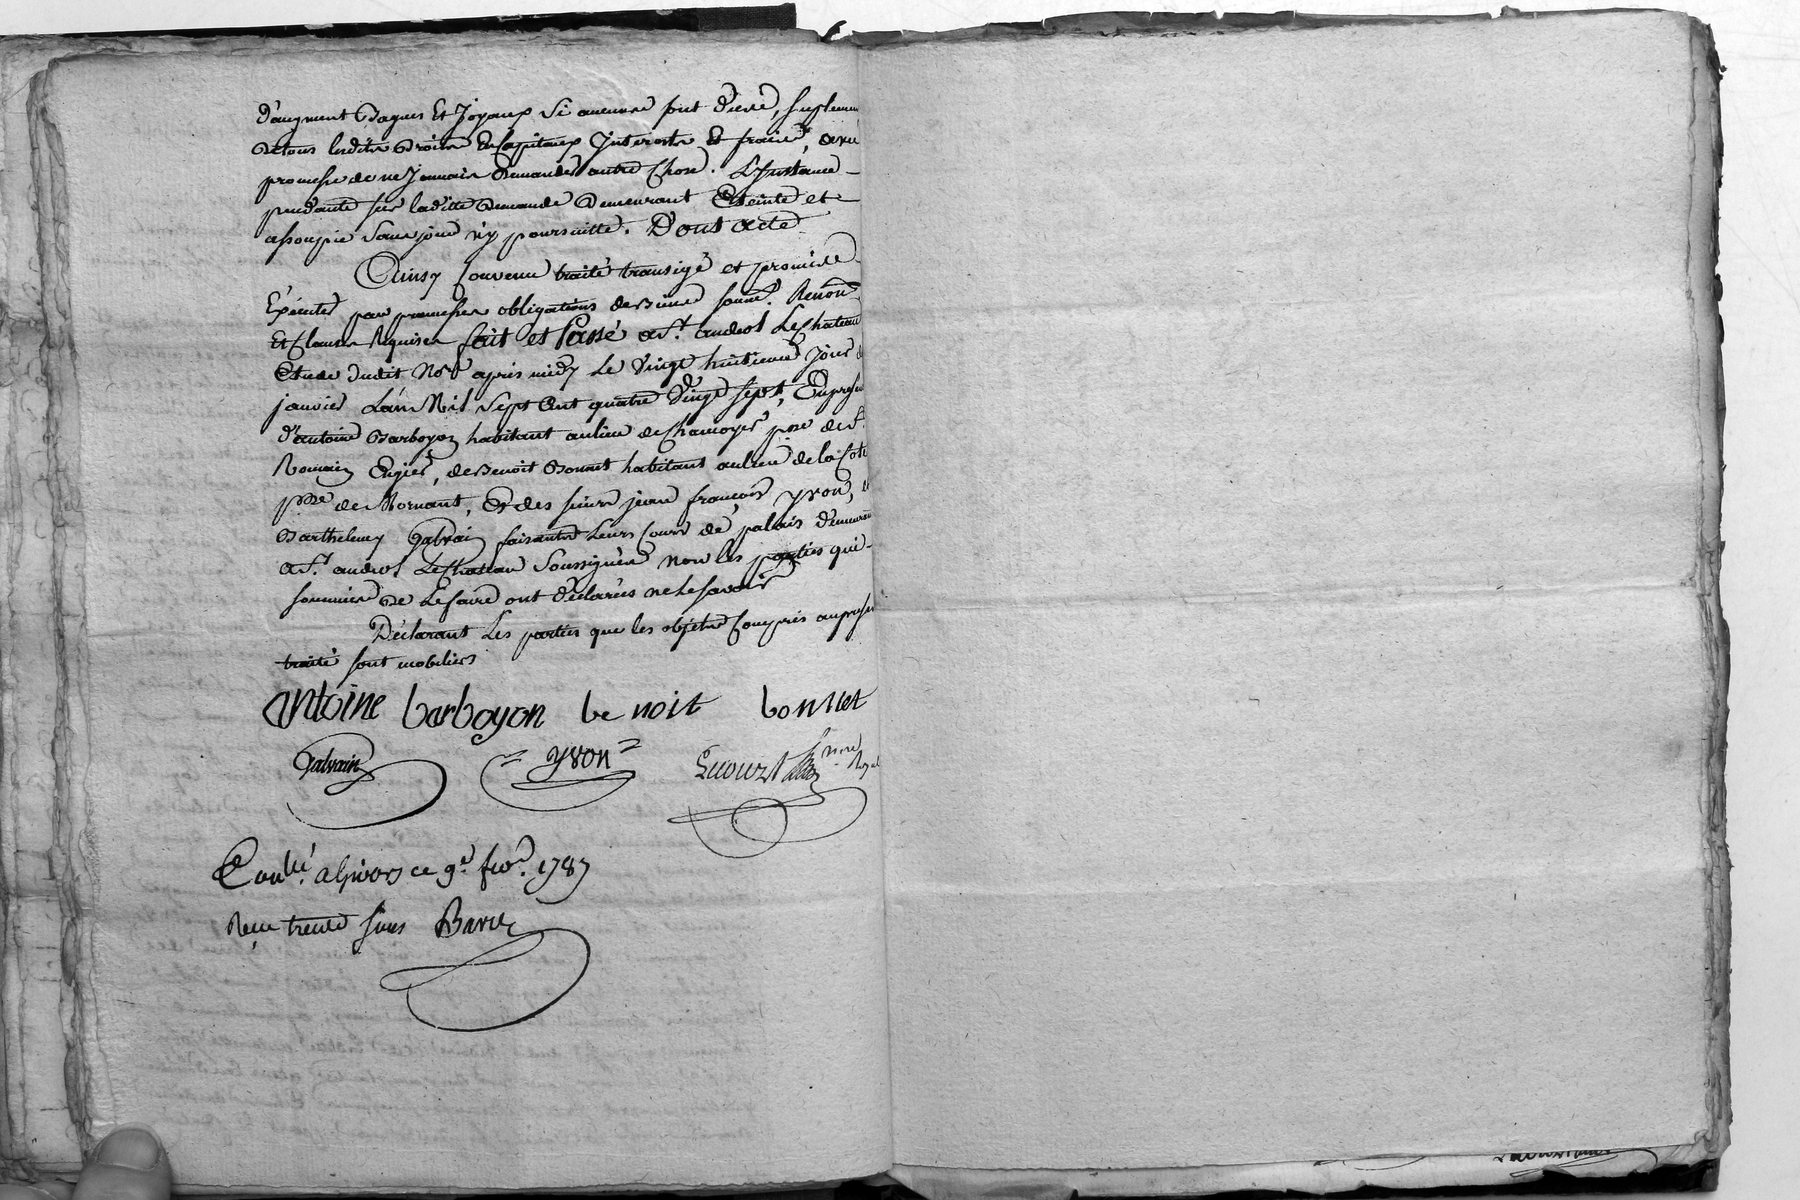 d'augment Bagues Et Joyaux si aucuns sont dieus, suplement
de tous lesdits Droits En Capitaux Jnterests Et frais, avec
promesse de ne Jamais Demander autre Chose. L'Jnstance
pendante sur laditte Demande Demeurant Eteinte et
assoupie sans jour n'y poursuitte. Dont acte
Ainsy Convenu traité transigé et promis
Éxécuter par promesses obligations de Biens soum.s Renon.
Et Clauses Requises fait et Passé a St. andeol Le Chateau
Etude dudit No.re apres midy Le vingt huitieme Jour de
janvier L'an Mil Sept Cent quatre Vingt sept, En presence
d'antoine Barboyon habitant au lieu de Chamoyer psse de St.
Romain Engier, de Benoit Bonnet habitant au lieu de la Cote
psse de Mornant, Et des sieurs jean françois yvon, et
Barthelemy Galvain faisants Leurs Cours de palais demeurants
a St. andeol Le Chateau Soussignés Non les parties qui
sommées De Le faire ont déclarées ne le savoir
Déclarant Les parties que les objets Compris au present
traité sont mobiliers
antoine barboyon be noit bonnet
Galvain yvon no.re Royal
Con.lé a Givors ce 9.e fev.r 1787
Recu trente sous